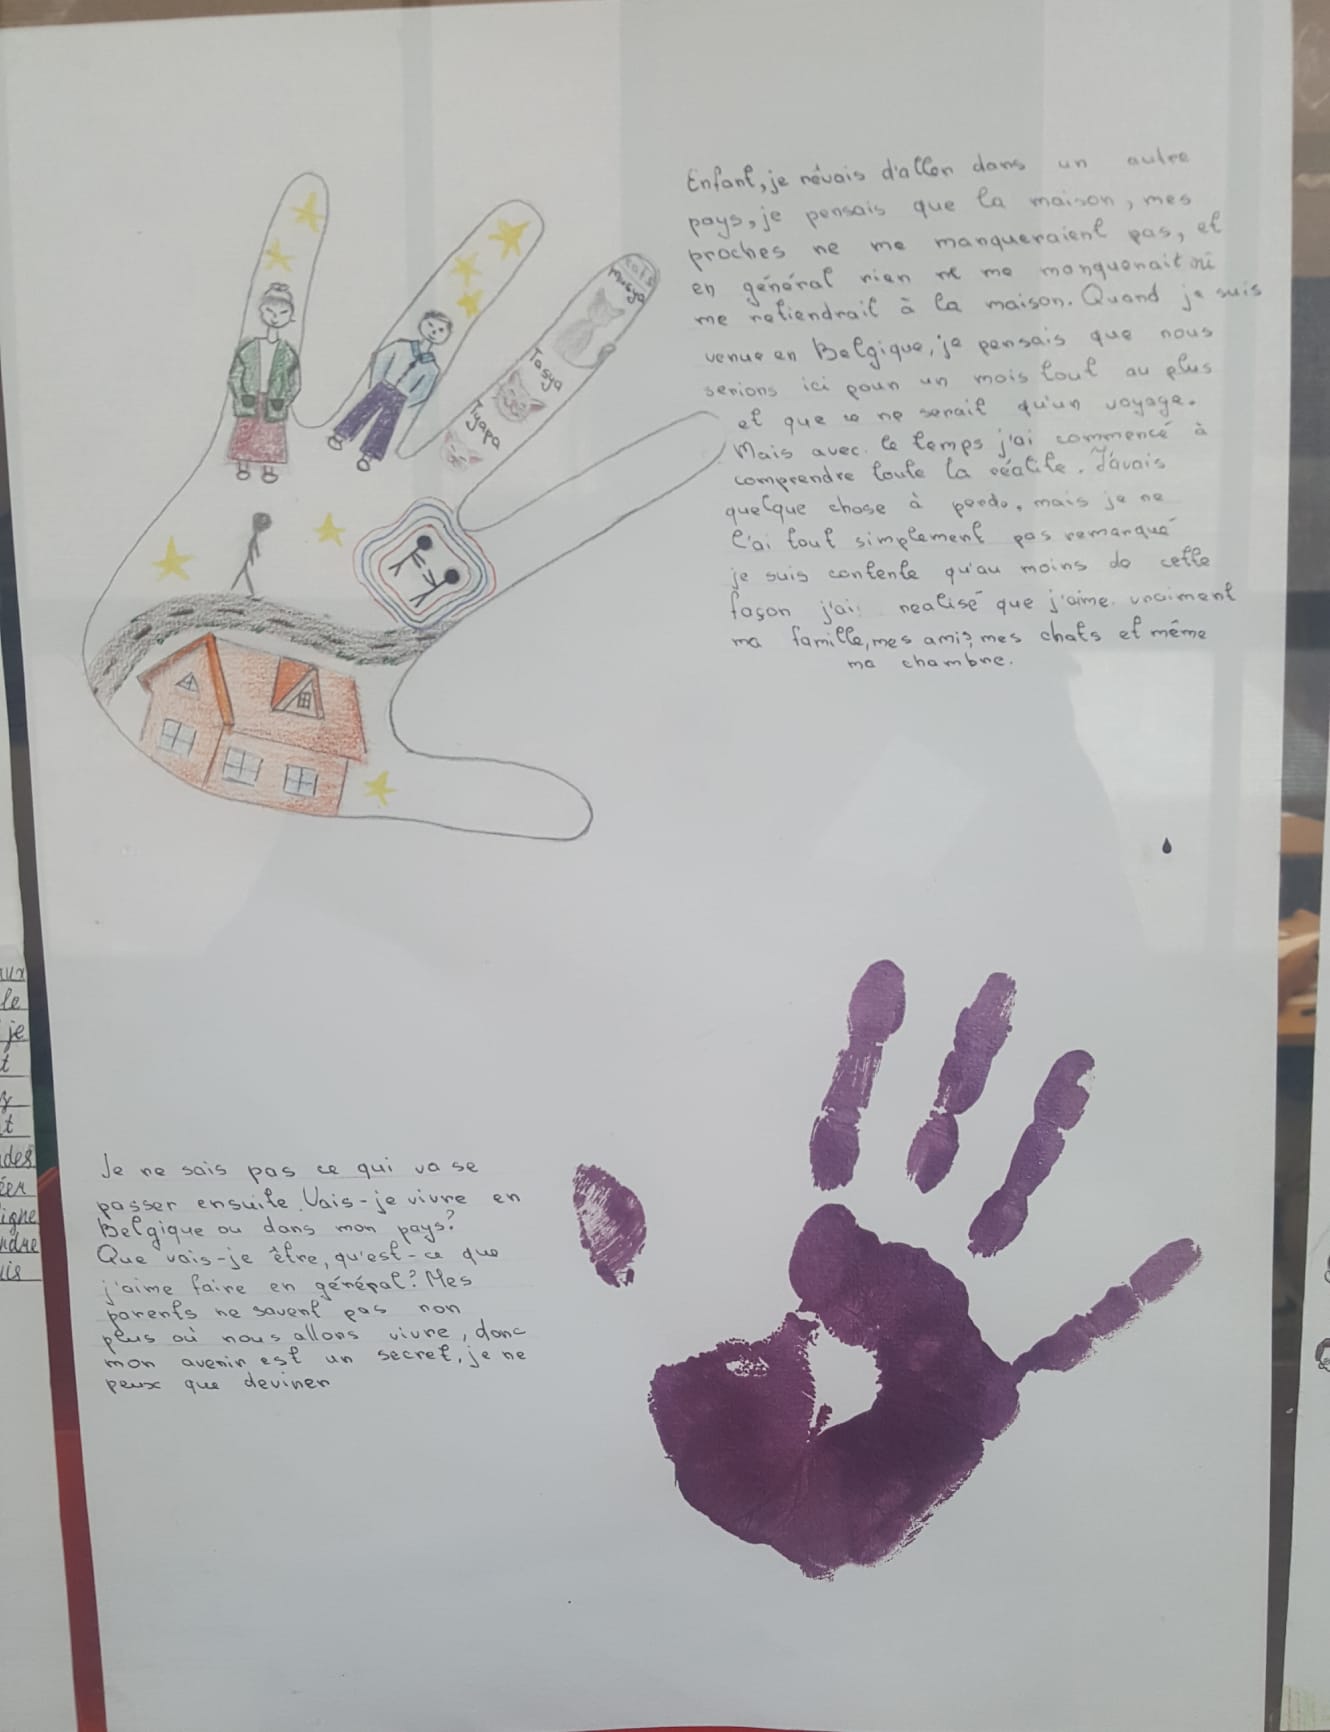 Enfant, je rêvais d'aller dans un autre
pays, je pensais que la maison, mes
proches ne me manqueraient pas, et
en général rien ne me manquerait ni
me retiendrait à la maison. Quand je suis
venue en Belgique, je pensais que nous
serions ici pour un mois tout au plus
et que ce ne serait qu'un voyage.
Mais avec le temps j'ai commencé à
comprendre toute la réalité. J'avais
quelque chose à perdo, mais je ne
l'ai tout simplement pas remarqué
je suis contente qu'au moins de cette
façon j'ai realisé que j'aime vraiment
ma famille, mes amis, mes chats et même
ma chambre.
Tosya
Tyapa
Je ne sais pas ce qui va se
passer ensuite. Vais-je vivre en
Belgique ou dans mon pays?
Que vais-je être, qu'est-ce que
j'aime faire en général? Mes
parents ne savent pas non
plus où nous allons vivre, donc
mon avenir est un secret, je ne
peux que deviner
le
je
t
t
des